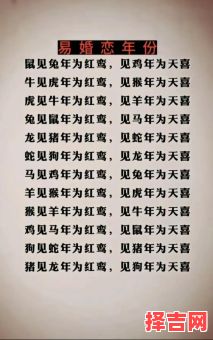 易婚恋年份
鼠见兔年为红鸾，见鸡年为天喜
牛见虎年为红鸾，见猴年为天喜
虎见牛年为红鸾，见羊年为天喜
兔见鼠年为红鸾，见马年为天喜
龙见猪年为红鸾，见蛇年为天喜
蛇见狗年为红鸾，见龙年为天喜
马见鸡年为红鸾，见兔年为天喜
羊见猴年为红鸾，见虎年为天喜
猴见羊年为红鸾，见牛年为天喜
鸡见马年为红鸾，见鼠年为天喜
狗见蛇年为红鸾，见猪年为天喜
猪见龙年为红鸾，见狗年为天喜
择吉网